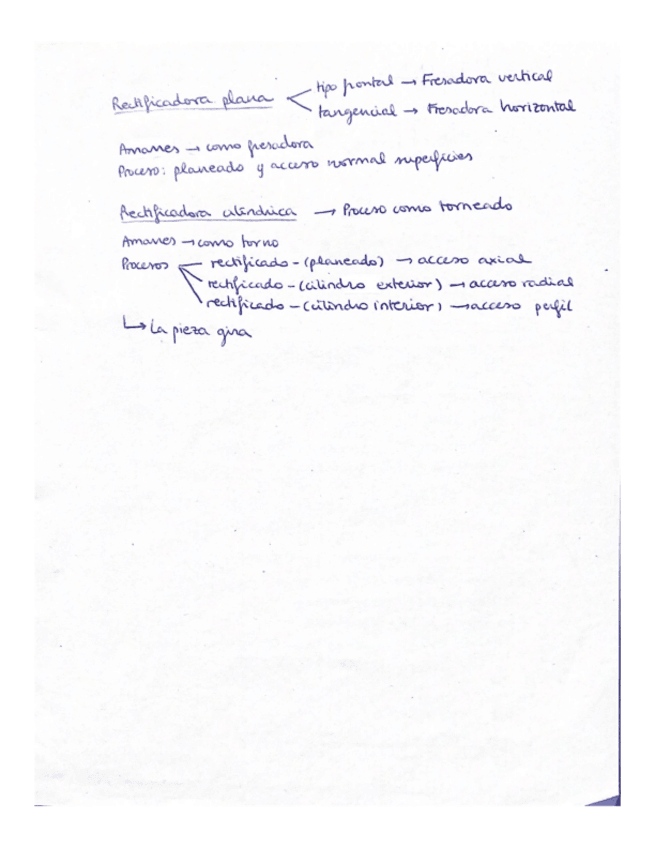 Rectificadora plana
tipo frontal → Fresadora vertical
tangencial → Fresadora horizontal
Amarres → como fresadora
Proceso: planeado y acceso normal superficies
Rectificadora cilíndrica → Proceso como torneado
Amarres → como torno
Procesos rectificado - (planeado) → acceso axial
rectificado - (cilindro exterior) → acceso radial
rectificado - (cilindro interior) → acceso perfil
↳ La pieza gira